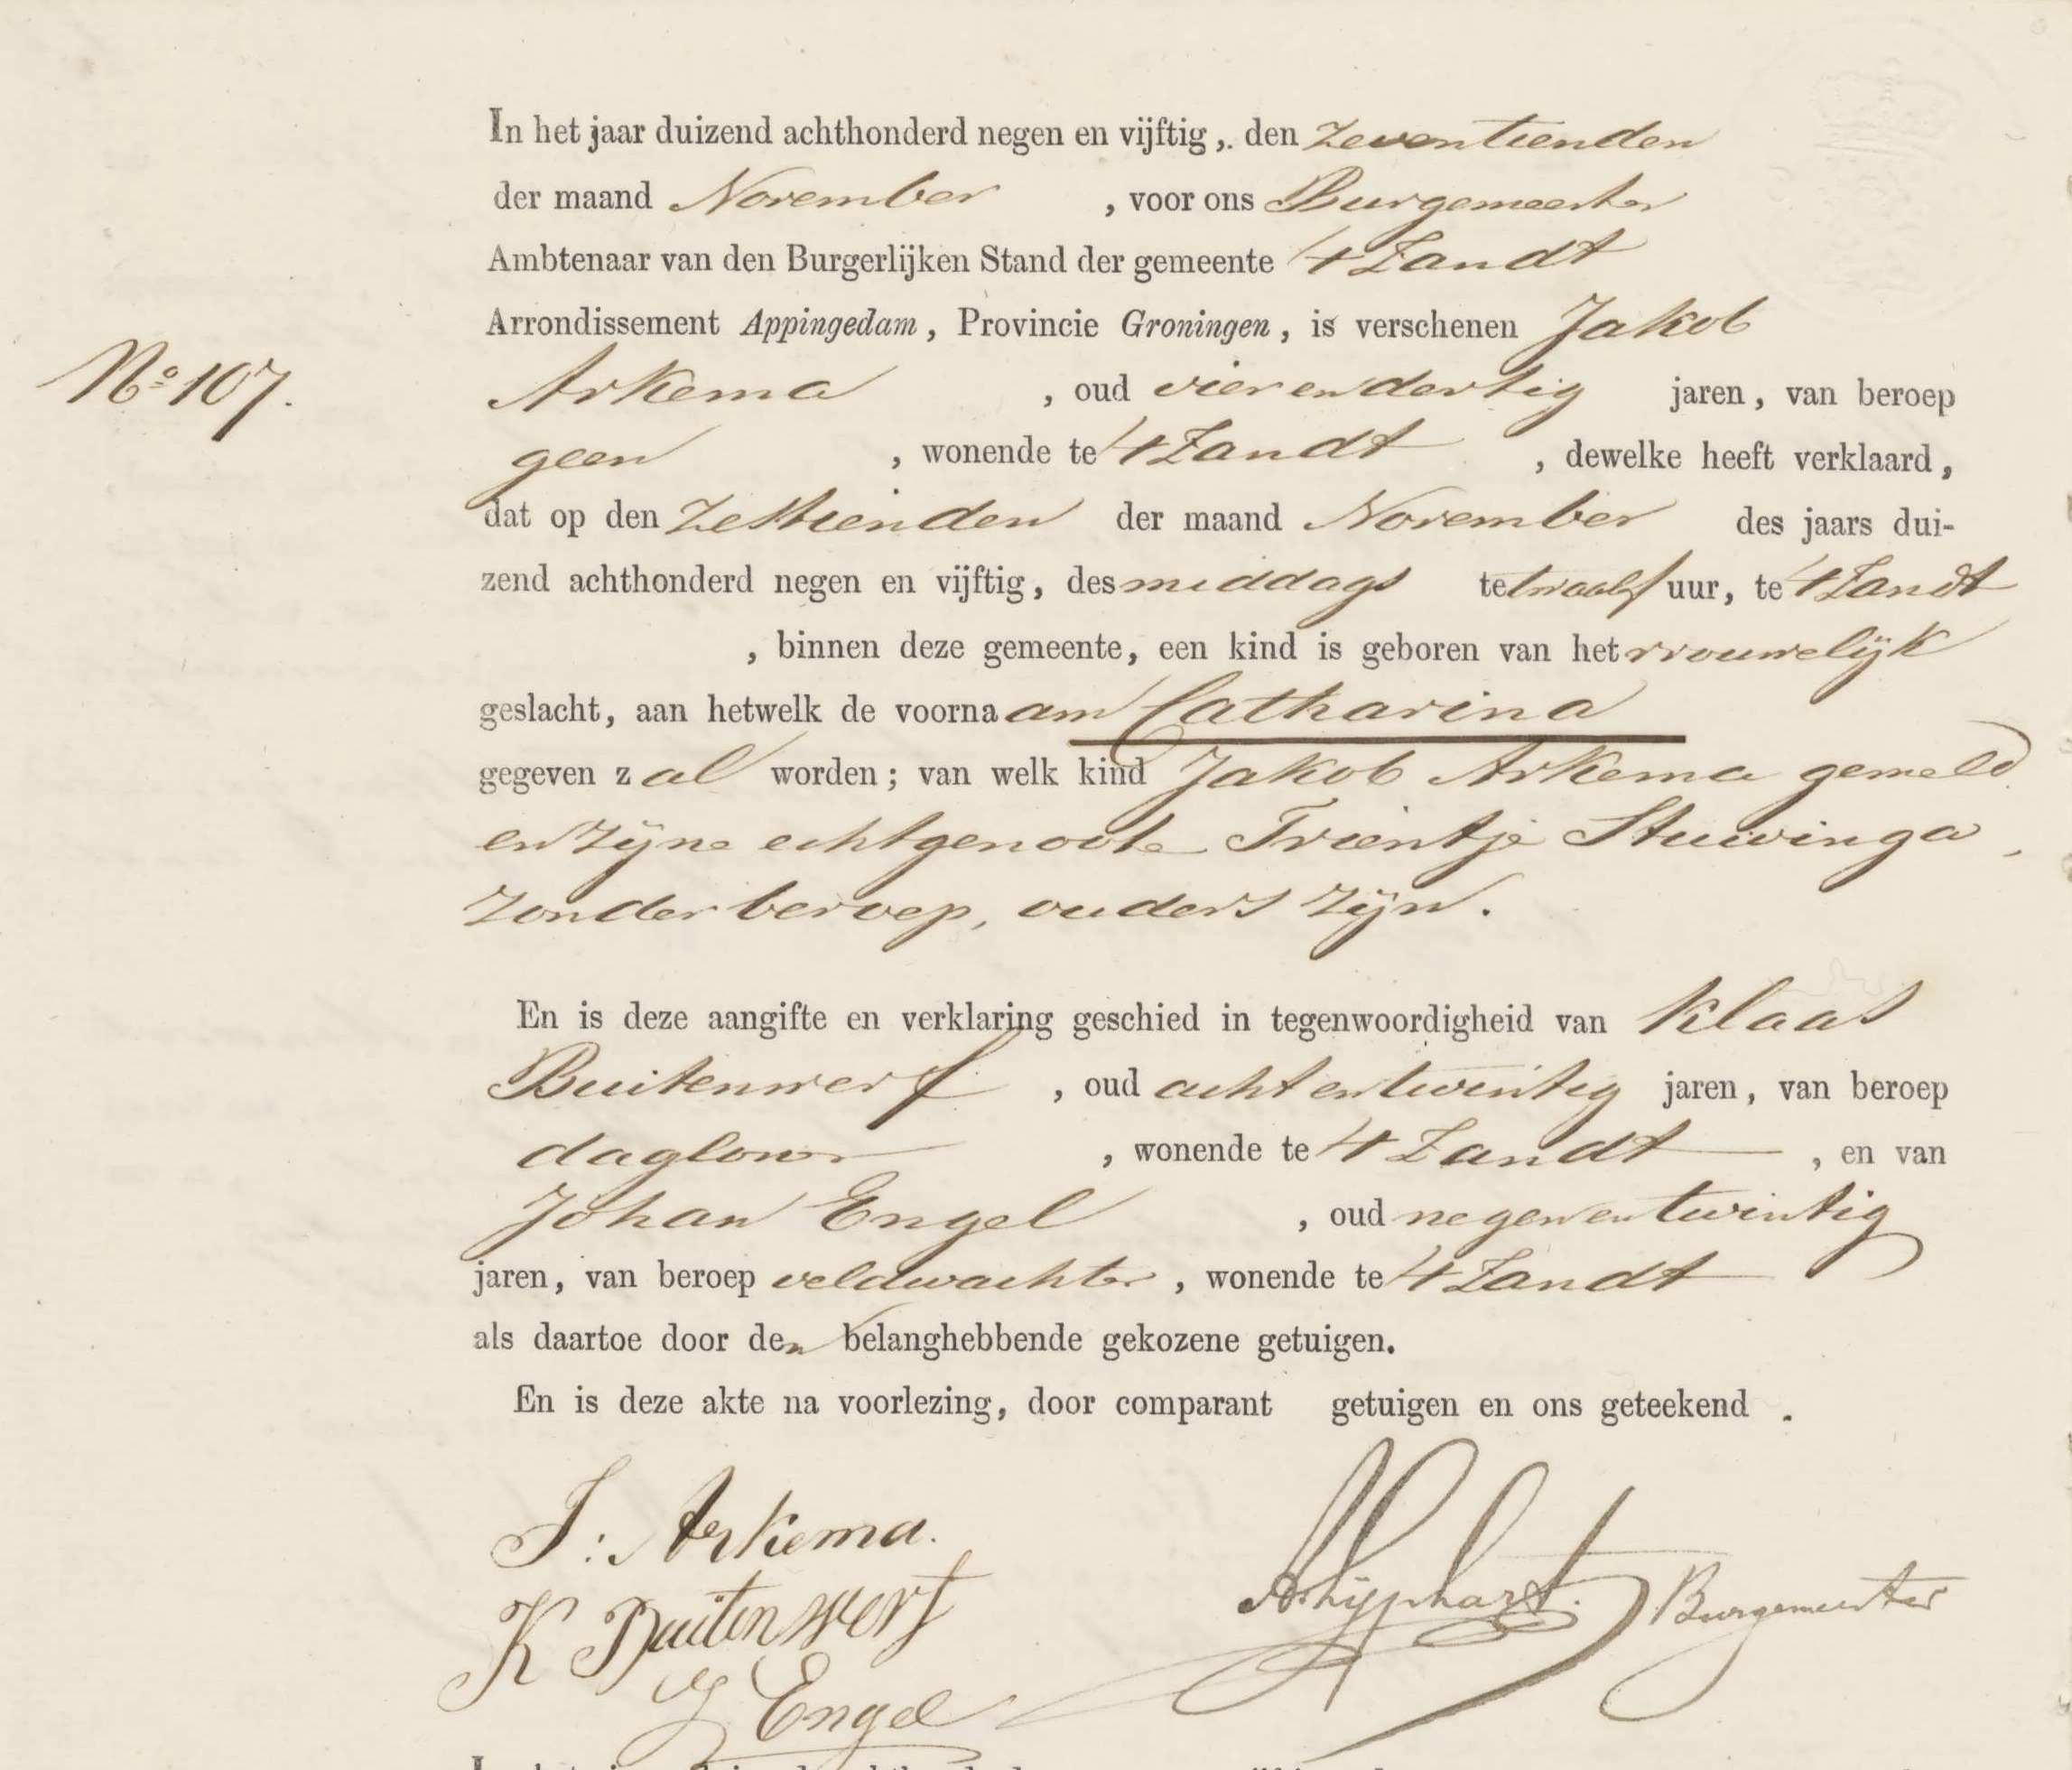 In het jaar duizend achthonderd negen en vijftig, den zeventienden
der maand November , voor ons Burgemeester
Ambtenaar van den Burgerlijken Stand der gemeente 't Zandt
Arrondissement Appingedam, Provincie Groningen, is verschenen Jakob
No 107.
Arkema , oud vierendertig jaren, van beroep
geen , wonende te 't Zandt , dewelke heeft verklaard,
dat op den zestienden der maand November des jaars dui-
zend achthonderd negen en vijftig, des middags te twaalf uur, te 't Zandt
, binnen deze gemeente, een kind is geboren van het vrouwelijk
geslacht, aan hetwelk de voornaam Catharina
gegeven zal worden; van welk kind Jakob Arkema gemeld
en zijne echtgenoote Trientje Stuivinga,
zonder beroep, ouders zijn.
En is deze aangifte en verklaring geschied in tegenwoordigheid van Klaas
Buitenwerf , oud achtentwintig jaren, van beroep
dagloner , wonende te 't Zandt , en van
Johan Engel , oud negenentwintig
jaren, van beroep veldwachter , wonende te 't Zandt
als daartoe door den belanghebbende gekozene getuigen.
En is deze akte na voorlezing, door comparant getuigen en ons geteekend .
J: Arkema.
K Buitenwerf
J Engel
Burgemeester